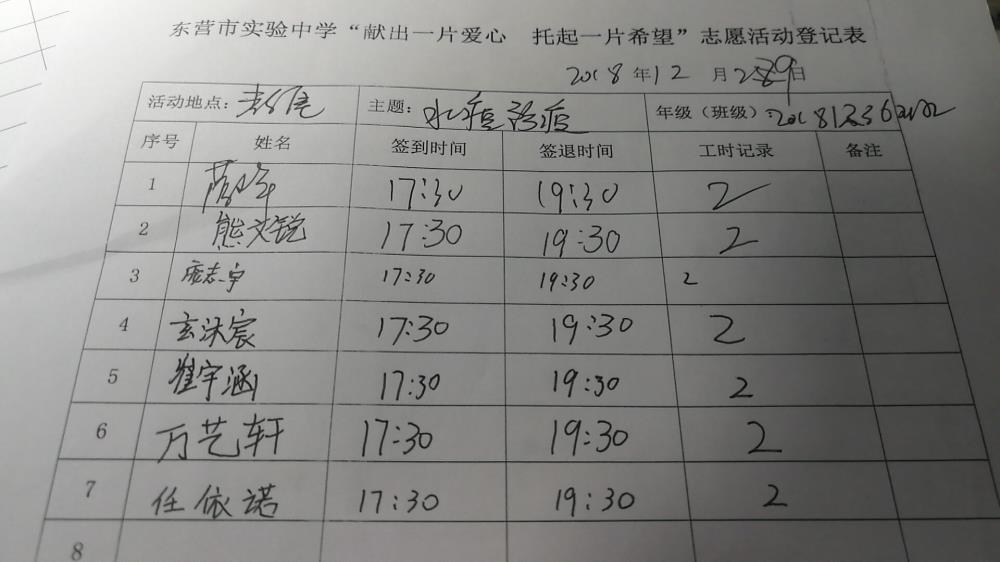 东营市实验中学“献出一片爱心 托起一片希望”志愿活动登记表
2018年12月29日
活动地点: 主题: 水痘 年级（班级）:
序号 姓名 签到时间 签退时间 工时记录 备注
1 17:30 19:30 2
2 熊文锐 17:30 19:30 2
3 庞志宇 17:30 19:30 2
4 玄沐宸 17:30 19:30 2
5 翟宇涵 17:30 19:30 2
6 万艺轩 17:30 19:30 2
7 任依诺 17:30 19:30 2
8